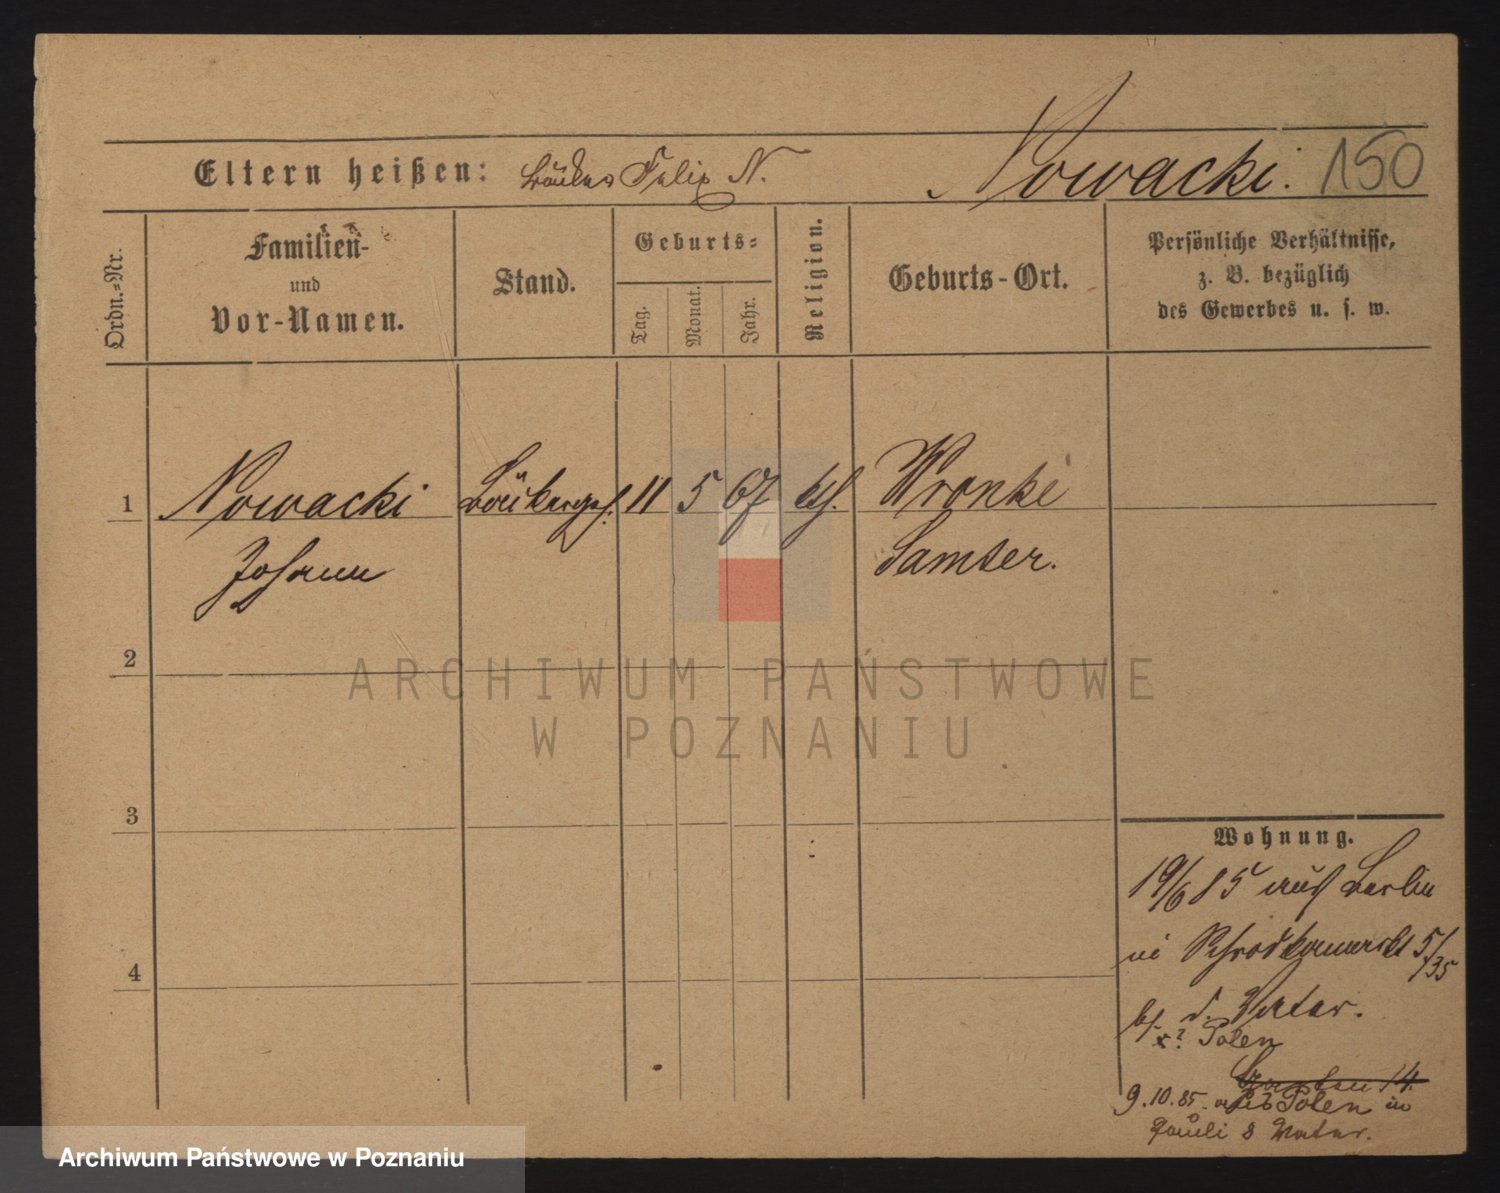 Eltern heißen: Bäcker Felix N. Nowacki. 150
Ordn.-Nr.
Familien-
und
Vor-Namen.
Stand.
Geburts-
Tag.
Monat.
Jahr.
Religion.
Geburts-Ort.
Persönliche Verhältnisse,
z. B. bezüglich
des Gewerbes u. s. w.
1 Nowacki Bäckerges. 11 5 67 kth. Wronke
Johann Samter.
2
3
4
Wohnung.
19/6 85 aus Berlin
in Schrodkamarkt 5/
/35
b. d. Vater.
Polen
14.
9.10.85. aus Polen in
Pauli 8 Vater.
ARCHIWUM PAŃSTWOWE
W POZNANIU
Archiwum Państwowe w Poznaniu